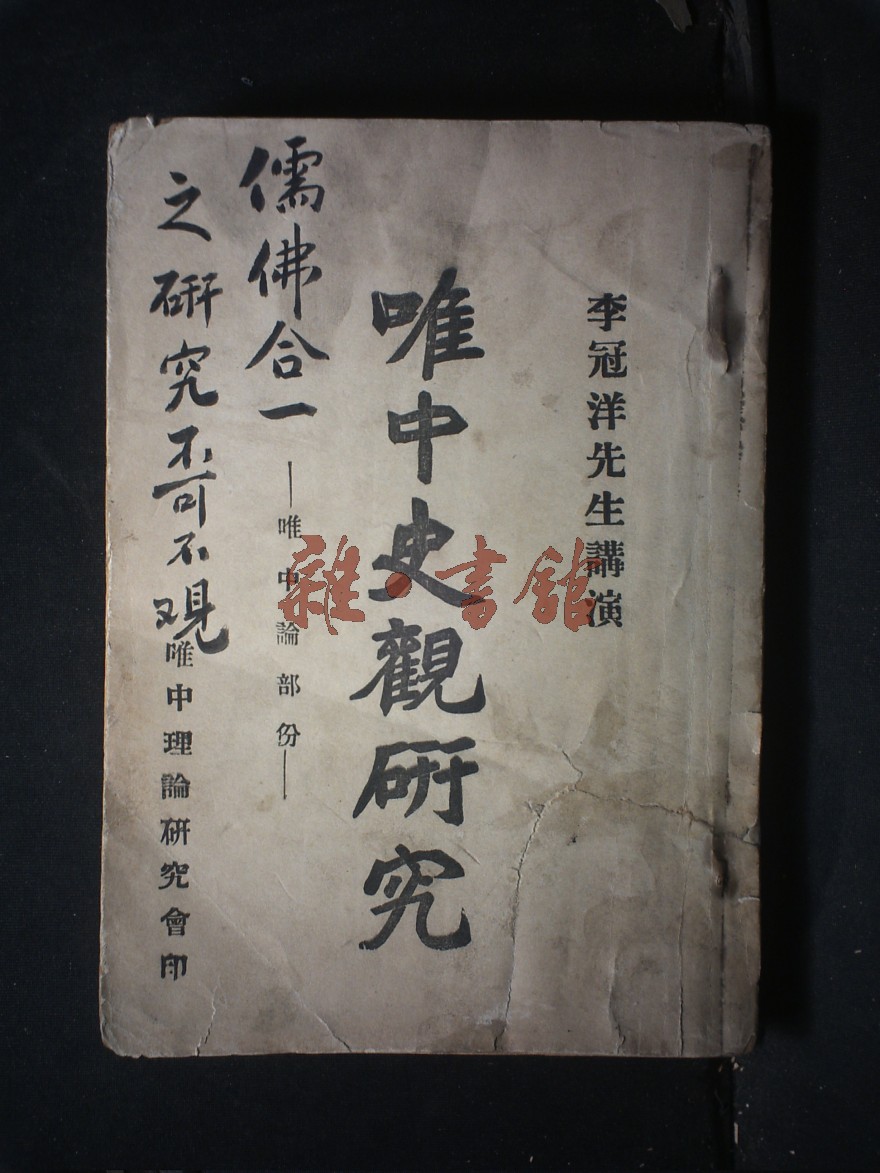 李冠洋先生講演
唯中史觀研究
—唯中論部份—
儒佛合一
之研究不可不观
唯中理論研究會印
雜·書館